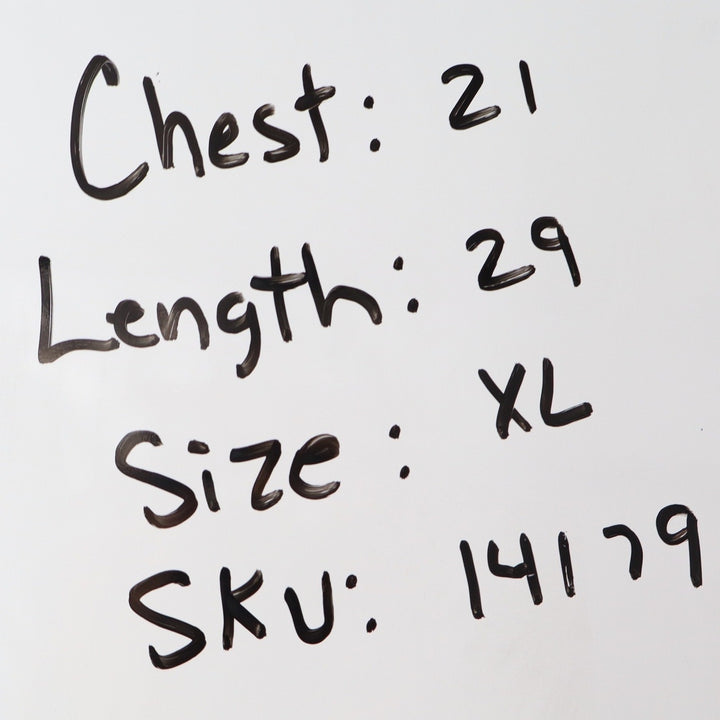 Chest: 21
Length: 29
Size: XL
SKU: 14179